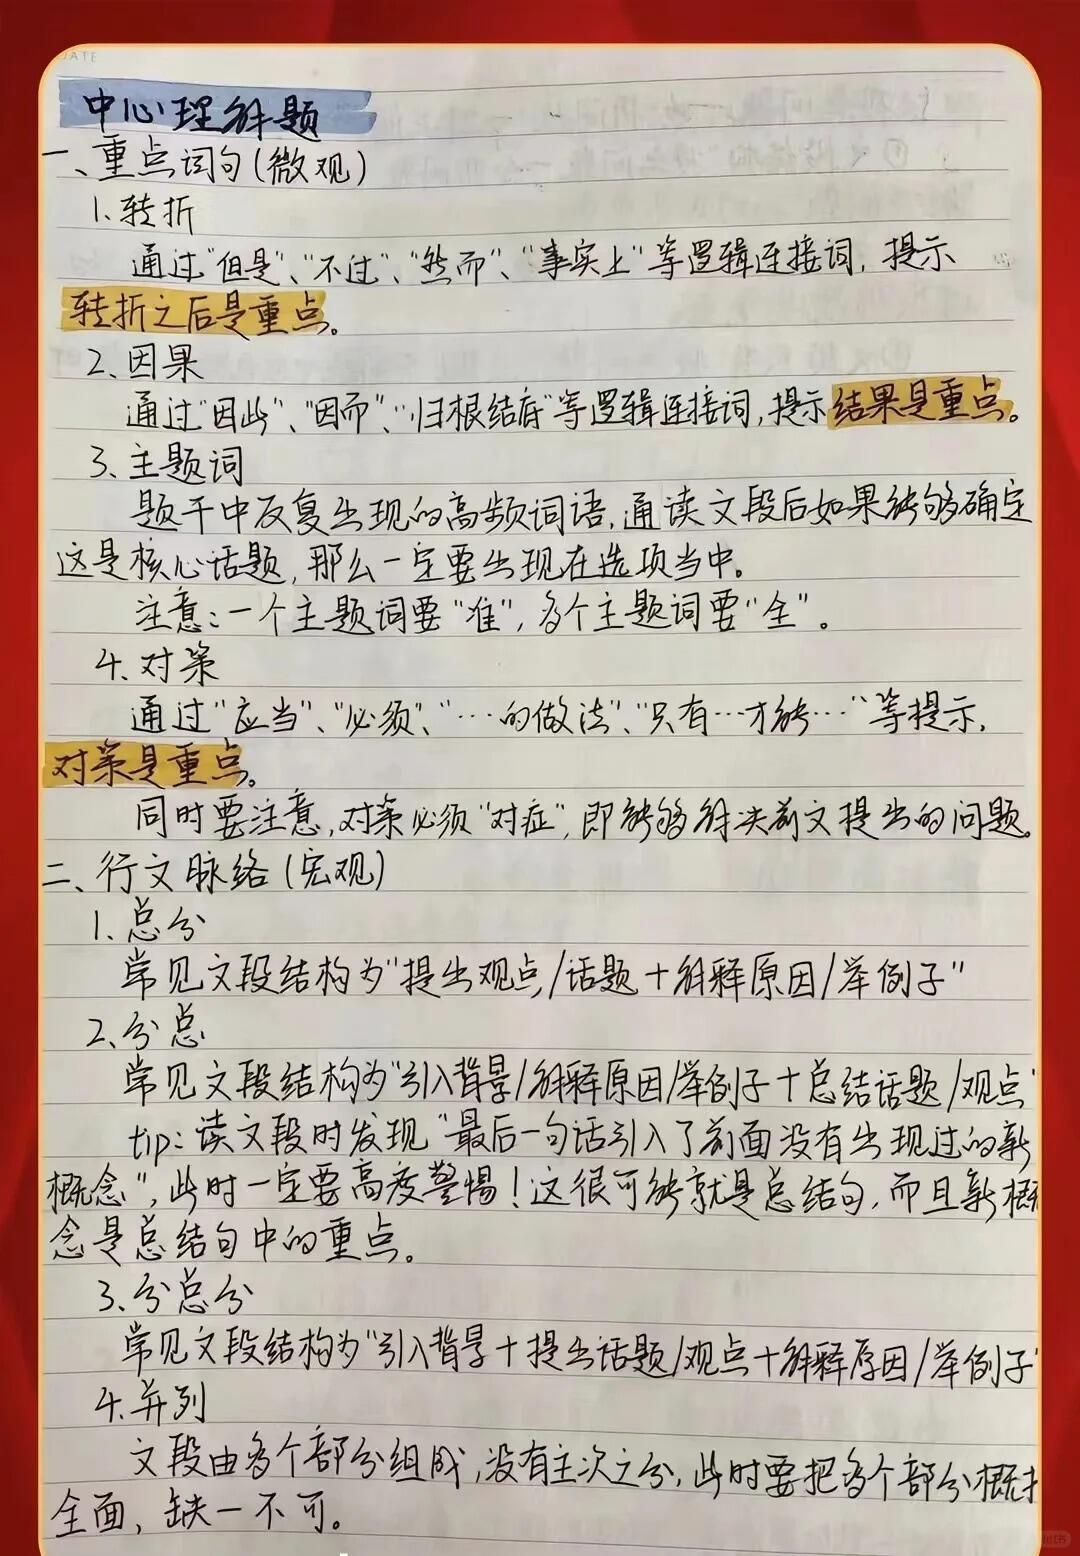 DATE
中心理解题
一、重点词句(微观)
1.转折
通过“但是”、“不过”、“然而”、“事实上”等逻辑连接词，提示
转折之后是重点。
2.因果
通过“因此”、“因而”、“归根结底”等逻辑连接词,提示结果是重点。
3.主题词
题干中反复出现的高频词语,通读文段后如果能够确定
这是核心话题,那么一定要出现在选项当中。
注意:一个主题词要“准”,多个主题词要“全”。
4.对策
通过“应当”、“必须”、“…的做法”、“只有…才能…”等提示,
对策是重点。
同时要注意,对策必须“对症”,即能够解决前文提出的问题。
二、行文脉络(宏观)
1.总分
常见文段结构为“提出观点/话题+解释原因/举例子”
2.分总
常见文段结构为“引入背景/解释原因/举例子+总结话题/观点”
tip:读文段时发现“最后一句话引入了前面没有出现过的新
概念”,此时一定要高度警惕!这很可能就是总结句,而且新概
念是总结句中的重点。
3.分总分
常见文段结构为“引入背景+提出话题/观点+解释原因/举例子”
4.并列
文段由多个部分组成,没有主次之分,此时要把多个部分概括
全面,缺一不可。